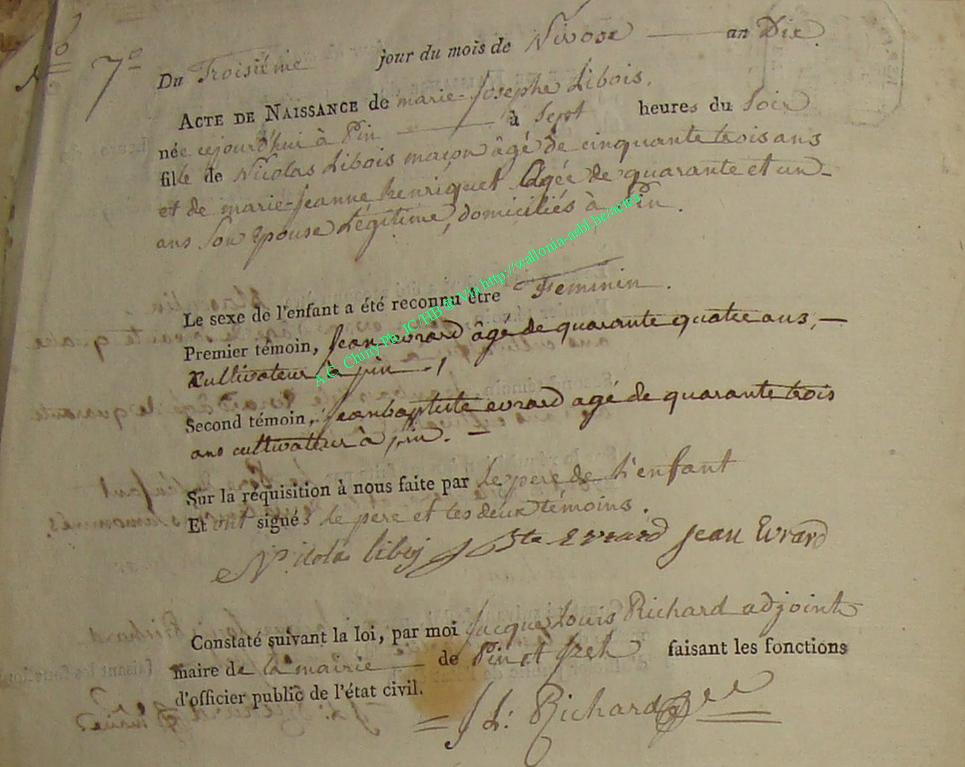 N° 7°
Du Troisième jour du mois de Nivose an Dix.
ACTE DE NAISSANCE de marie-Josephe Libois,
née cejourd'hui à Pin à Sept heures du Soir
fille de Nicolas Libois maçon âgé de cinquante trois ans
et de marie-Jeanne henriquet âgée de quarante et un
ans Son Epouse Légitime, domiciliés à Pin.
Le sexe de l'enfant a été reconnu être Feminin.
Premier témoin, Jean evrard âgé de quarante quatre ans,
Cultivateur à pin.
Second témoin, jean baptiste evrard agé de quarante trois
ans cultivateur à pin.
Sur la réquisition à nous faite par le pere de L'enfant
Et ont signés le père et les deux témoins.
Nicolas libois J Bte Evrard Jean Evrard
Constaté suivant la loi, par moi Jacque Louis Richard adjoint
maire de la mairie de Pin et Izel faisant les fonctions
d'officier public de l'état civil.
J L: Richard
A.G. Chiny via JC HB et via http://wallonia-asbl.be/actes